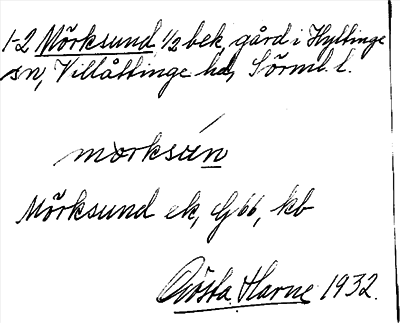 1-2 Mörksund 1/2 bek, gård i Hyltinge
sn, Villåttinge hd, Sörml. l.
morksún
Mörksund ek, G66, kb
Gösta Harne 1932.